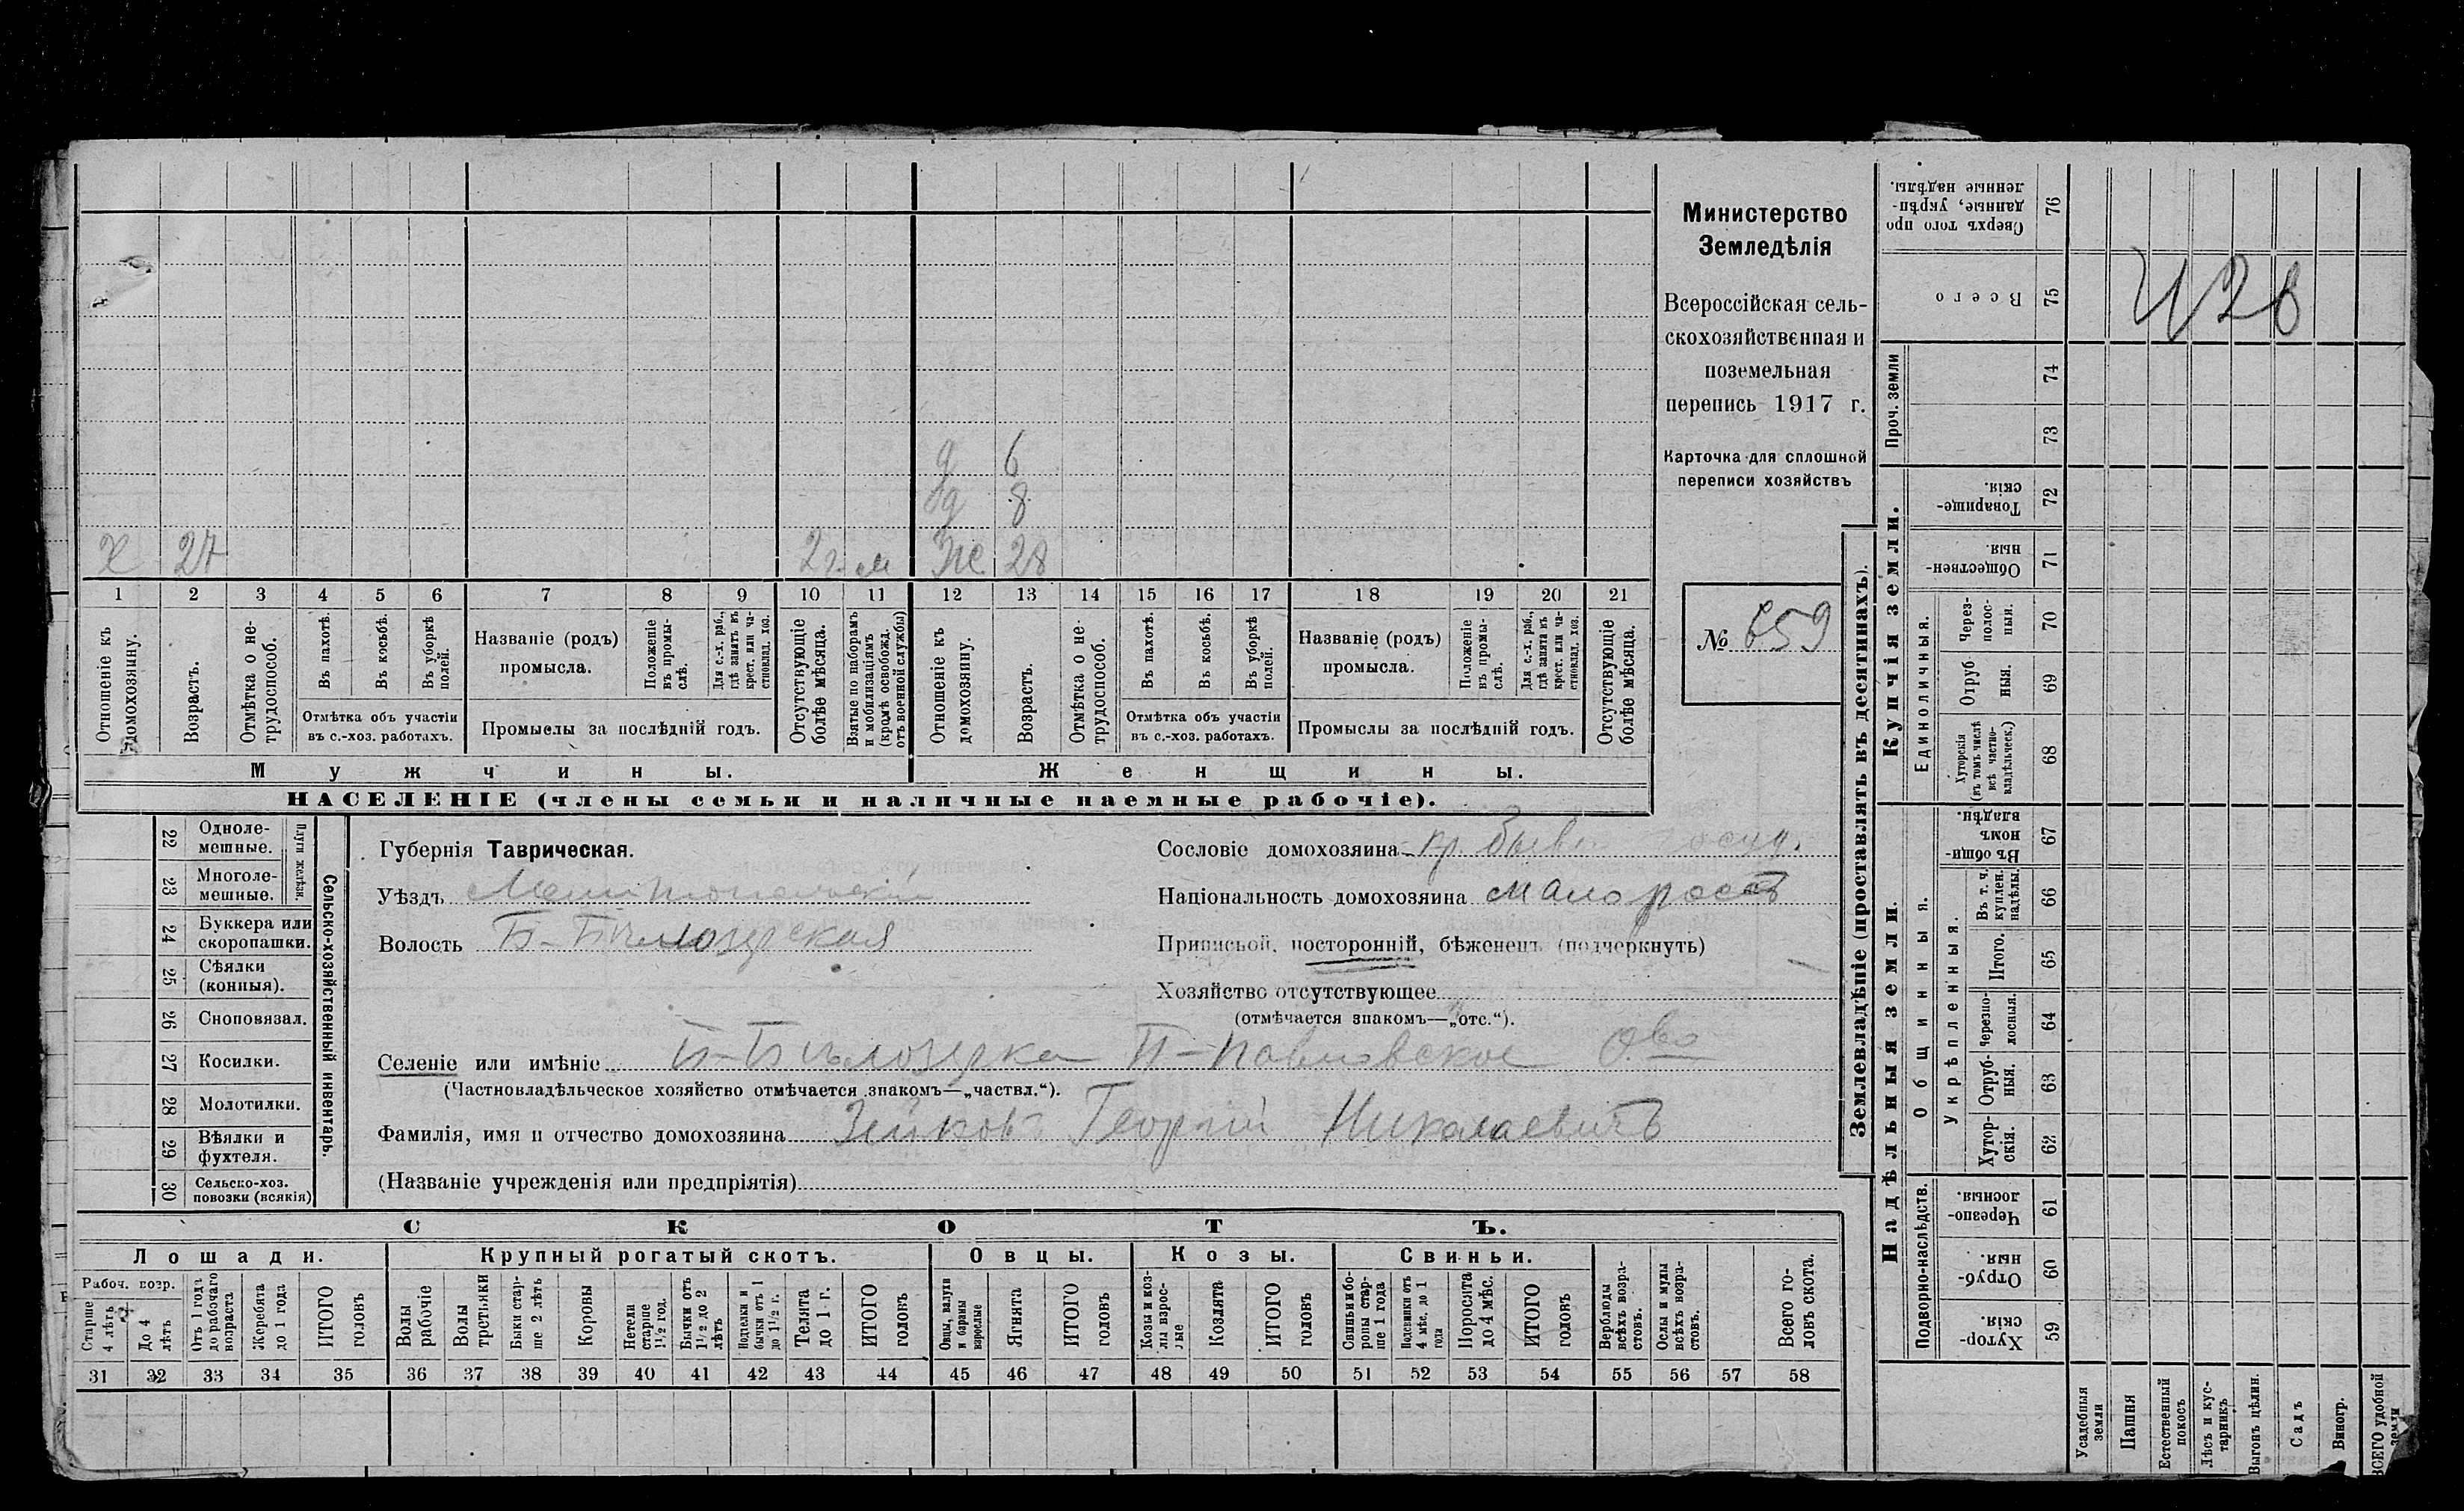 х 27 2 г. м Ж 28
д 8
д 6
1 2 3 4 5 6 7 8 9 10 11 12 13 14 15 16 17 18 19 20 21
Отношеніе къ домохозяину.
Возрастъ.
Отмѣтка о не-
трудоспособ.
Въ пахотѣ.
Въ косьбѣ.
Въ уборкѣ
полей.
Отмѣтка объ участіи
въ с.-хоз. работахъ.
Названіе (родъ)
промысла.
Положеніе
въ промы-
слѣ.
Для с.-х. раб.,
гдѣ занятъ въ
крест. или ча-
стновлад. хоз.
Промыслы за послѣдній годъ.
Отсутствующіе
болѣе мѣсяца.
Взятые по наборамъ
и мобилизаціямъ
(кромѣ освобожд.
отъ военной службы)
Отношеніе къ
домохозяину.
Возрастъ.
Отмѣтка о не-
трудоспособ.
Въ пахотѣ.
Въ косьбѣ.
Въ уборкѣ
полей.
Отмѣтка объ участіи
въ с.-хоз. работахъ.
Названіе (родъ)
промысла.
Положеніе
въ промы-
слѣ.
Для с.-х. раб.,
гдѣ занята въ
крест. или ча-
стновлад. хоз.
Промыслы за послѣдній годъ.
Отсутствующіе
болѣе мѣсяца.
Мужчины.
Женщины.
НАСЕЛЕНІЕ (члены семьи и наличные наемные рабочіе).
Министерство
Земледѣлія
Всероссійская сель-
скохозяйственная и
поземельная
перепись 1917 г.
Карточка для сплошной
переписи хозяйствъ
№ 659
22 Одноле-
мешные.
23 Многоле-
мешные.
Плуги желѣзн.
24 Буккера или
скоропашки.
25 Сѣялки
(конныя).
26 Сноповязал.
27 Косилки.
28 Молотилки.
29 Вѣялки и
фухтеля.
30 Сельско-хоз.
повозки (всякія)
Сельско-хозяйственный инвентарь.
Губернія Таврическая.
Уѣздъ Мелитопольскій
Волость Б-Бѣлозерская
Сословіе домохозяина кр. бывш. госуд.
Національность домохозяина малороссъ
Приписной, посторонній, бѣженецъ (подчеркнуть)
Хозяйство отсутствующее
(отмѣчается знакомъ—„отс.“).
Селеніе или имѣніе Б-Бѣлозерка П-Павловское О-во
(Частновладѣльческое хозяйство отмѣчается знакомъ—„частвл.“).
Фамилія, имя и отчество домохозяина Зейковъ Георгій Николаевичъ
(Названіе учрежденія или предпріятія)
СКОТЪ.
Лошади. Крупный рогатый скотъ. Овцы. Козы. Свиньи.
Рабоч. возр.
Старше
4 лѣтъ
До 4
лѣтъ
Отъ 1 года
до рабочаго
возраста
Жеребята
до 1 года
ИТОГО
головъ
Волы
рабочіе
Волы
третьяки
Быки стар-
ше 2 лѣтъ
Коровы
Нетели
старше
1½ год.
Бычки отъ
1½ до 2
лѣтъ
Подтелки и
бычки отъ 1
до 1½ г.
Телята
до 1 г.
ИТОГО
головъ
Овцы, валухи
и бараны
взрослые
Ягнята
ИТОГО
головъ
Козы и коз-
лы взрос-
лые
Козлята
ИТОГО
головъ
Свиньи и бо-
ровы стар-
ше 1 года
Подсвинки отъ
4 мѣс. до 1
года
Поросята
до 4 мѣс.
ИТОГО
головъ
Верблюды
всѣхъ возра-
стовъ.
Ослы и мулы
всѣхъ возра-
стовъ.
Всего го-
ловъ скота.
31 32 33 34 35 36 37 38 39 40 41 42 43 44 45 46 47 48 49 50 51 52 53 54 55 56 57 58
Землевладѣніе (проставлять въ десятинахъ).
Сверхъ того про
данные, укрѣп-
ленные надѣлы.
76
Всего
75
Проч. земли
74
73
Купчія земли.
Товарище-
скія.
72
Обществен-
ныя.
71
Единоличныя.
Через-
полос-
ныя.
70
Отруб
ныя.
69
Хуторскія
(въ томъ числѣ
всѣ частно-
владѣльческ.)
68
Надѣльныя земли.
Общинныя.
Въ общи-
номъ
владѣн.
67
Укрѣпленныя.
Въ т. ч.
куплен.
надѣлы.
66
Итого.
65
Черезпо-
лосныя.
64
Отруб-
ныя.
63
Хутор-
скія.
62
Подворно-наслѣдств.
Черезпо-
лосныя.
61
Отруб-
ныя
60
Хутор-
скія.
59
Усадебныя
земли
Пашня
Естественный
покосъ
Лѣсъ и кус-
тарникъ
Выгонъ цѣлин.
Садъ
Виногр.
ВСЕГО удобной
земли